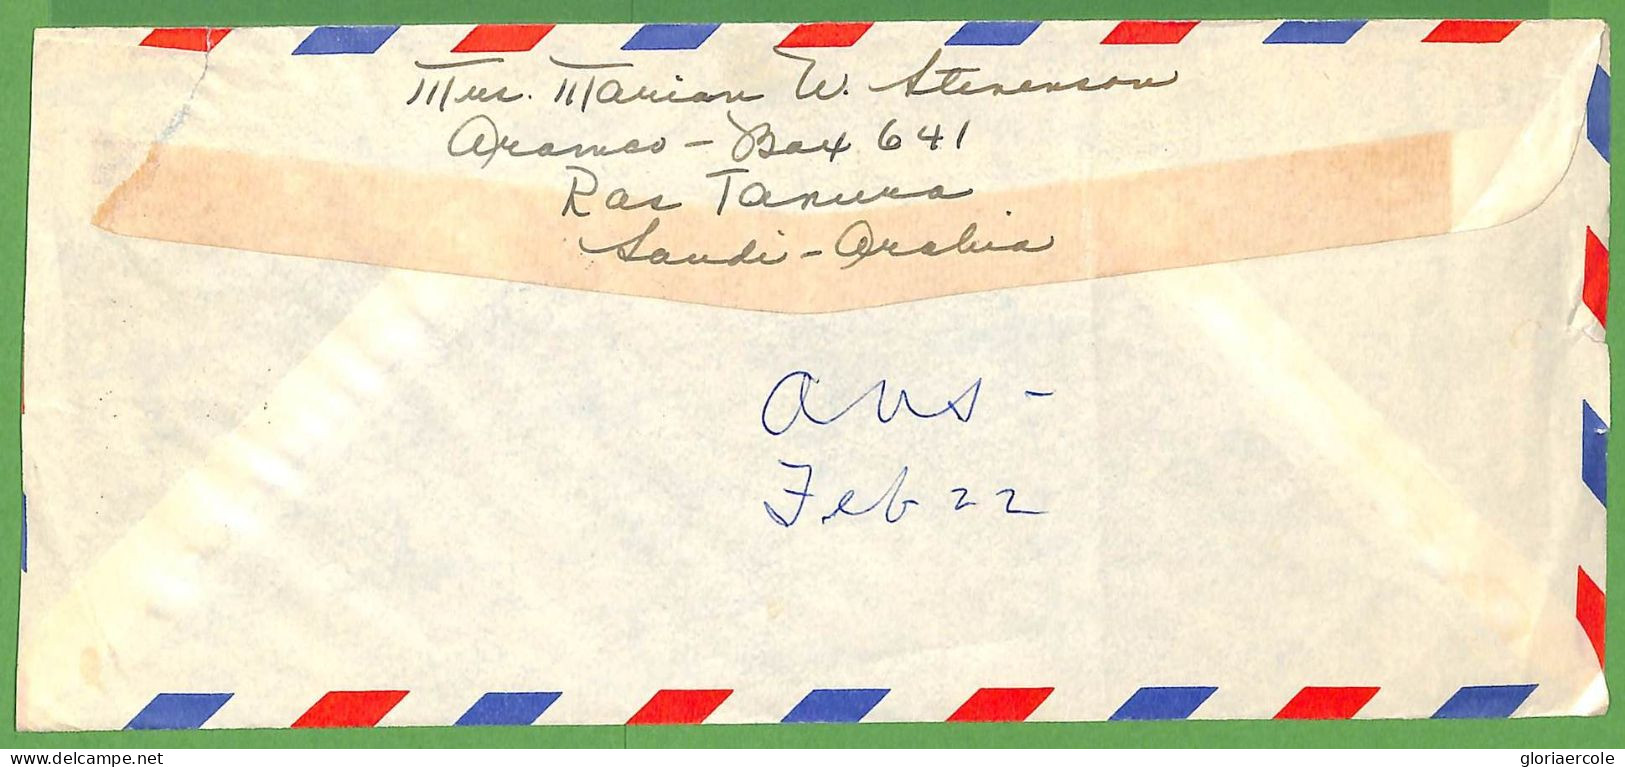 Mrs. Marian W. Stevenson
Aramco - Box 641
Ras Tanura
Saudi - Arabia
Ans -
Feb 22
gloriaercole